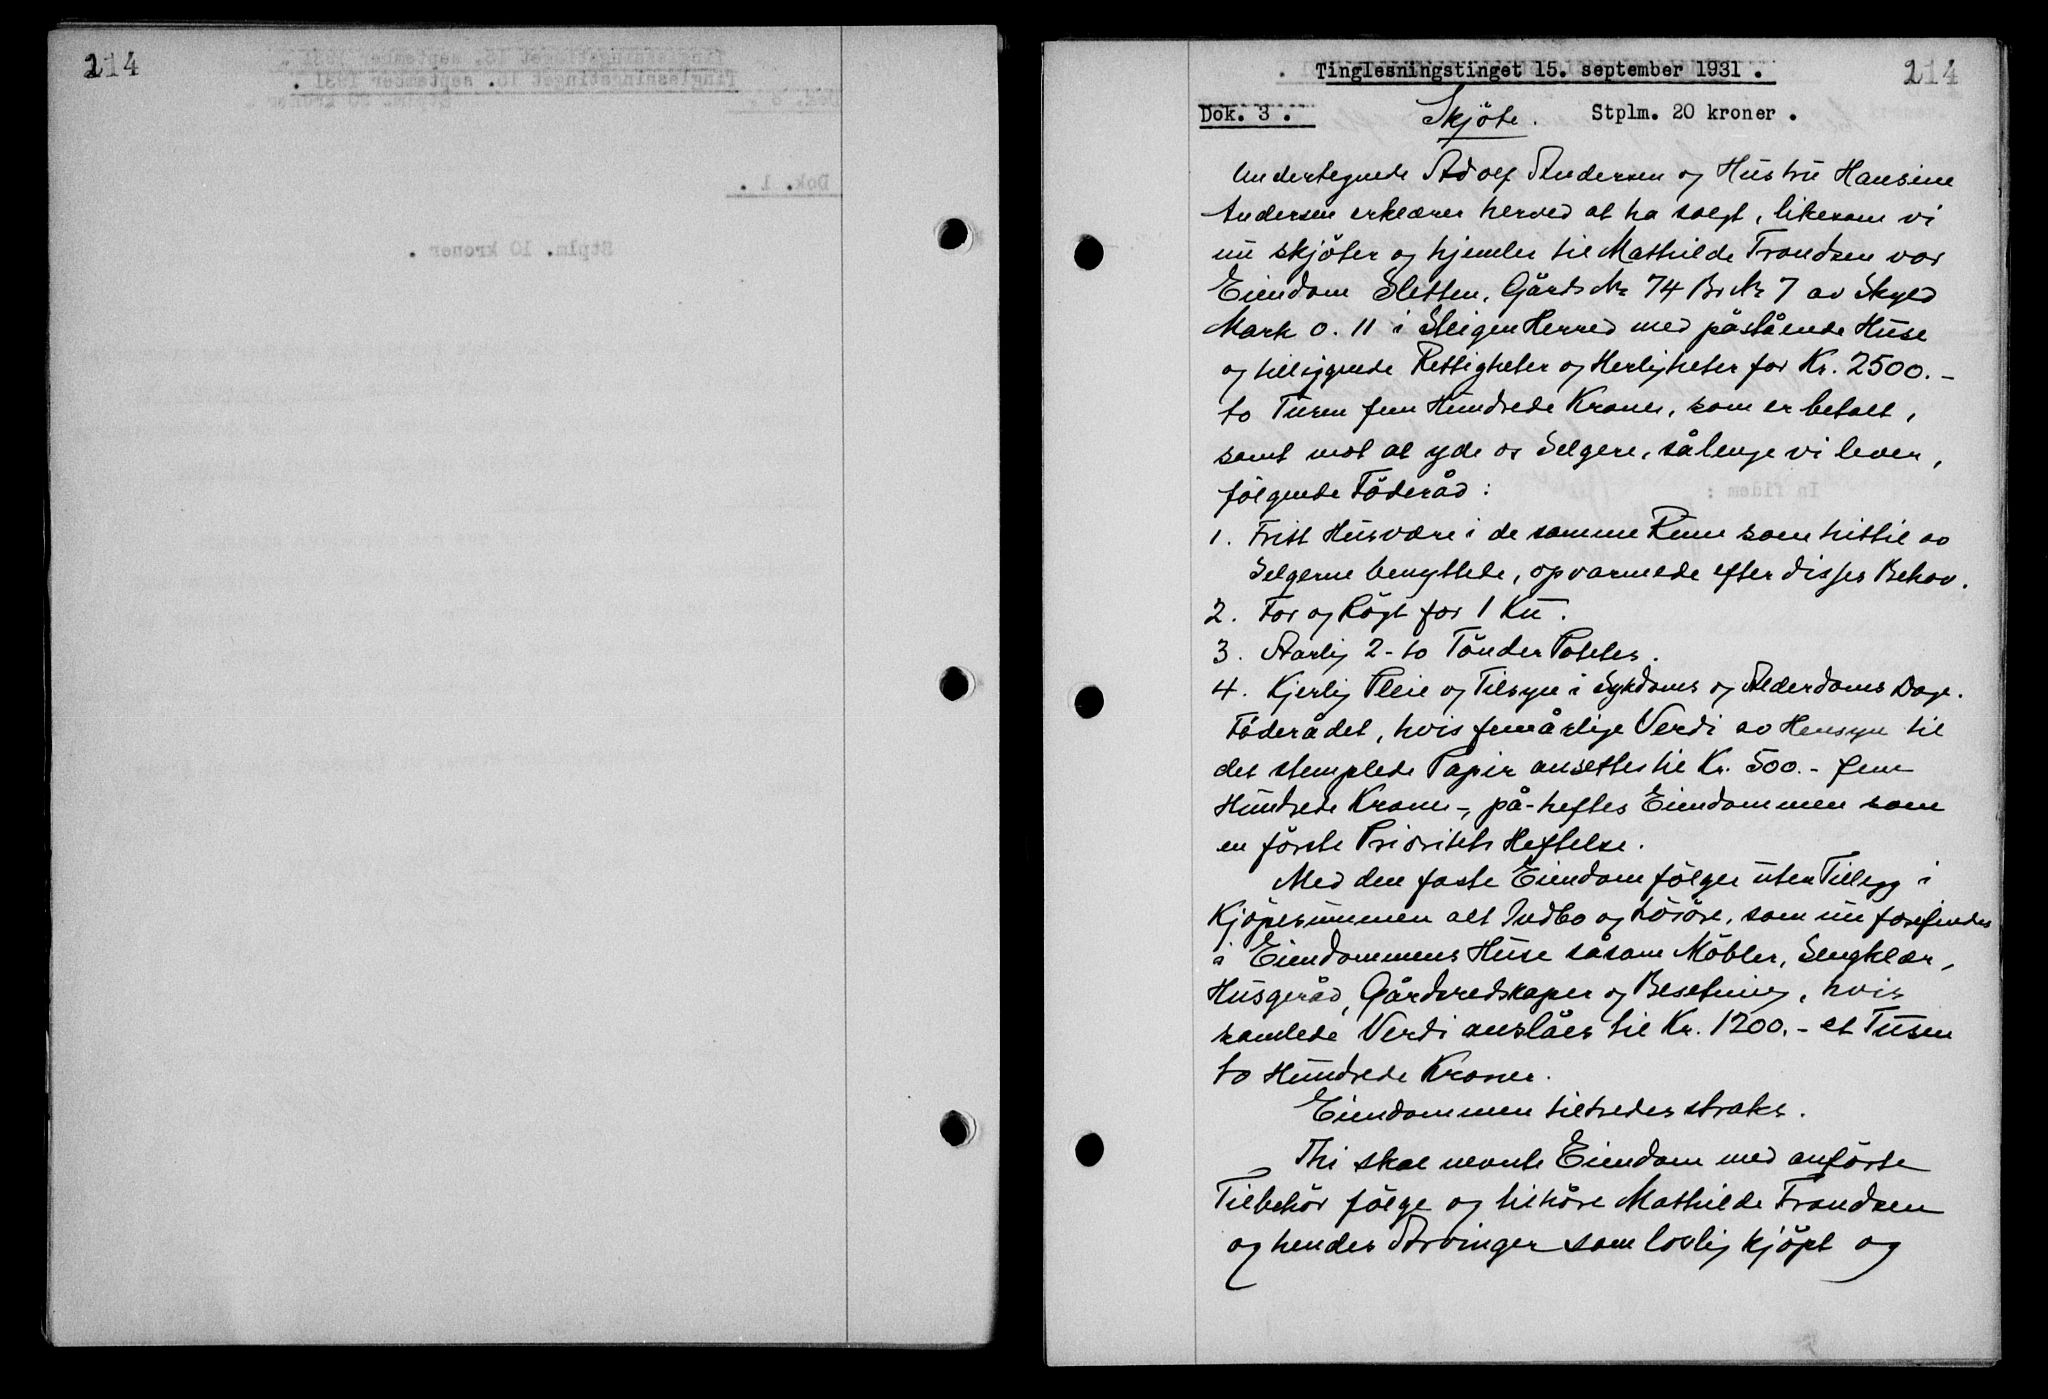 214
214
Tinglesningstinget 15. september 1931 .
Dok. 3 . Skjöte. Stplm. 20 kroner .
Undertegnede Adolf Andersen og Hustru Hansine
Andersen erklærer herved at ha solgt, likesom vi
nu skjöter og hjemler til Mathilde Frandsen vor
Eiendom Sletten, Gårds № 74 Br.№ 7 av Skyld
Mark 0.11 i Steigen Herred med påstående Huse
og tilliggende Rettigheter og Herligheter for Kr. 2500.-
to Tusen fem Hundrede Kroner, som er betalt,
samt mot at yde os Selgere, sålenge vi lever,
fölgende Föderåd:
1. Frit Husvære i de samme Rum som hittil av
Selgerne benyttede, opvarmede efter disses Behov.
2. For og Rögt for 1 Ku.
3. Aarlig 2-to Tönder Poteter.
4. Kjerlig Pleie og Tilsyn i Sykdoms og Alderdoms Dage.
Föderådet, hvis femårlige Verdi av Hensyn til
det stemplede Papir ansettes til Kr. 500.- fem
Hundrede Kroner-, på-heftes Eiendommen som
en förste Prioritets Heftelse.
Med den faste Eiendom fölger uten Tillegg i
Kjöpesummen alt Indbo og Lösöre, som nu forefindes
i Eiendommens Huse såsom Möbler, Sengklær,
Husgeråd, Gårdsredskaper og Besetning, hvis
samlede Verdi anslåes til Kr. 1200.- et Tusen
to Hundrede Kroner.
Eiendommen tiltredes straks.
Thi skal nevnte Eiendom med anförte
Tilbehör fölge og tilhöre Mathilde Frandsen
og hendes Arvinger som lovlig kjöpt og